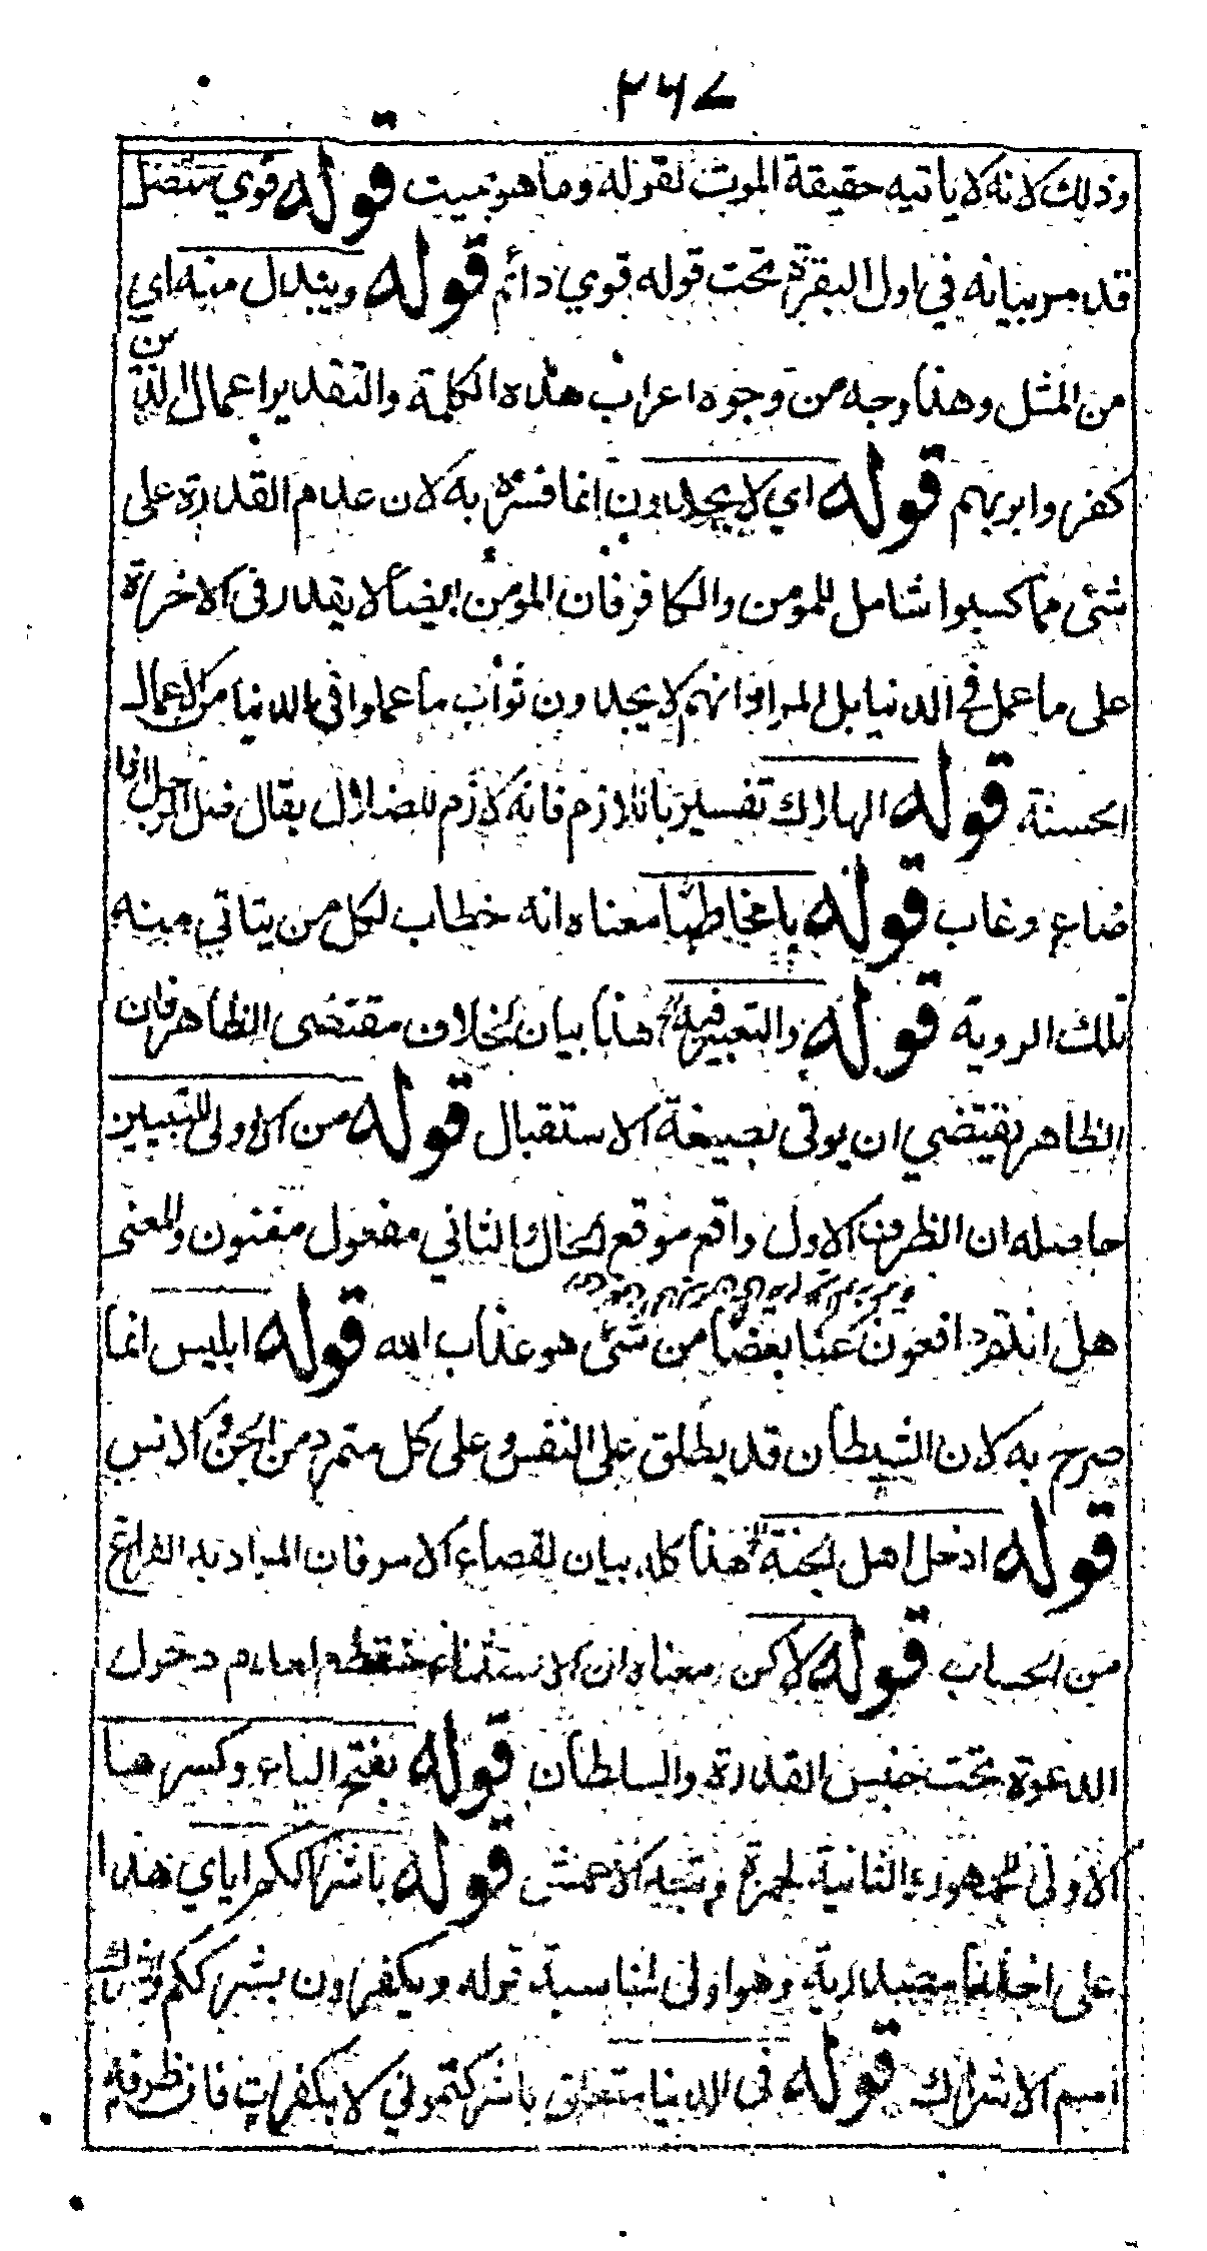 ٢٦٧
وذلك لانه لا ياتيه حقيقة الموت لقوله وما هو بميت قوله قوي متصل
قد مر بيانه في اول البقرة تحت قوله قوي دائم قوله ويبدل منه اي
من المثل وهذا وجه من وجوه اعراب هذه الكلمة والتقدير اعمال الذين
كفروا بربهم قوله اي لا يجدون انما فسره به لان عدم القدرة على
شئ مما كسبوا شامل للمومن والكافر فان المؤمن ايضا لا يقدر في الاخرة
على ما عمل في الدنيا بل المراد انهم لا يجدون ثواب ما عملوا في الدنيا من الاعمال
الحسنة قوله الهلاك تفسير باللازم فانه لازم للضلال يقال ضل الرجل اذا
ضاع وغاب قوله يا مخاطبا معناه انه خطاب لكل من يتاتي منه
تلك الروية قوله والتعبير فيه الخ هذا بيان لخلاف مقتضى الظاهر فان
الظاهر يقتضي ان يوتى بصيغة الاستقبال قوله من الاولى للتبيين
حاصله ان الظرف الاول واقع موقع الحال والثاني مفعول مغنون والمعنى
هل انتم دافعون عنا بعضا من شئ هو عذاب الله قوله ابليس انما
صرح به لان الشيطان قد يطلق على النفس وعلى كل متمرد من الجن والانس
قوله ادخل اهل الجنة الخ هذا كله بيان لقضاء الامر فان المراد به الفراغ
من الحساب قوله لاكن معناه ان الاستثناء منقطع لعدم دخول
الدعوة تحت جنس القدرة والسلطان قوله بفتح الياء وكسرها
الاولى للجمهور والثانية لحمزة وتبعه الاعمش قوله باشراككم اياي هذا
على اخلفا مصدرية وهو اولى لمناسبة قوله ويكفرون بشرككم والشرك
اسم الاشراك قوله في الدنيا متعلق باشركتموني لا بكفرت فان ظرفه